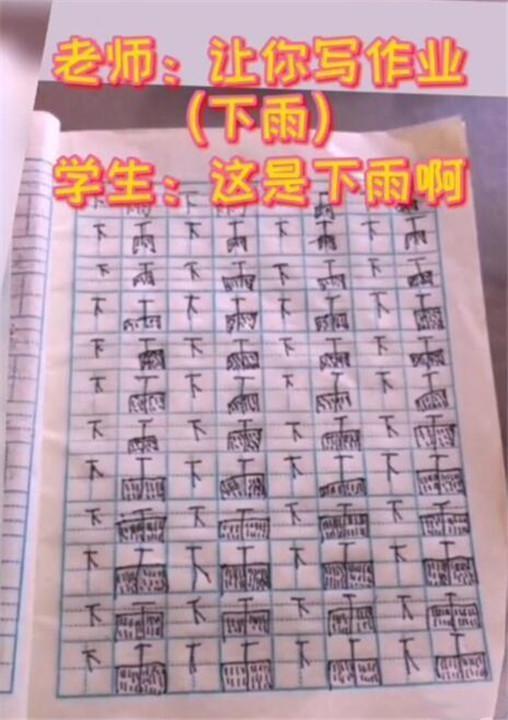 老师：让你写作业
（下雨）
学生：这是下雨啊
下 雨 下 雨 雨 雨
下 雨 下 雨 下 雨 下 雨
下 雨 下 雨 下 雨 下 雨
下 雨 下 雨 下 雨 下 雨
下 雨 下 雨 下 雨 下 雨
下 雨 下 雨 下 雨 下 雨
下 雨 下 雨 下 雨 下 雨
下 雨 下 雨 下 雨 下 雨
下 雨 下 雨 下 雨 下 雨
下 雨 下 雨 下 雨 下 雨
下 雨 下 雨 下 雨 下 雨
下 雨 下 雨 下 雨 下 雨